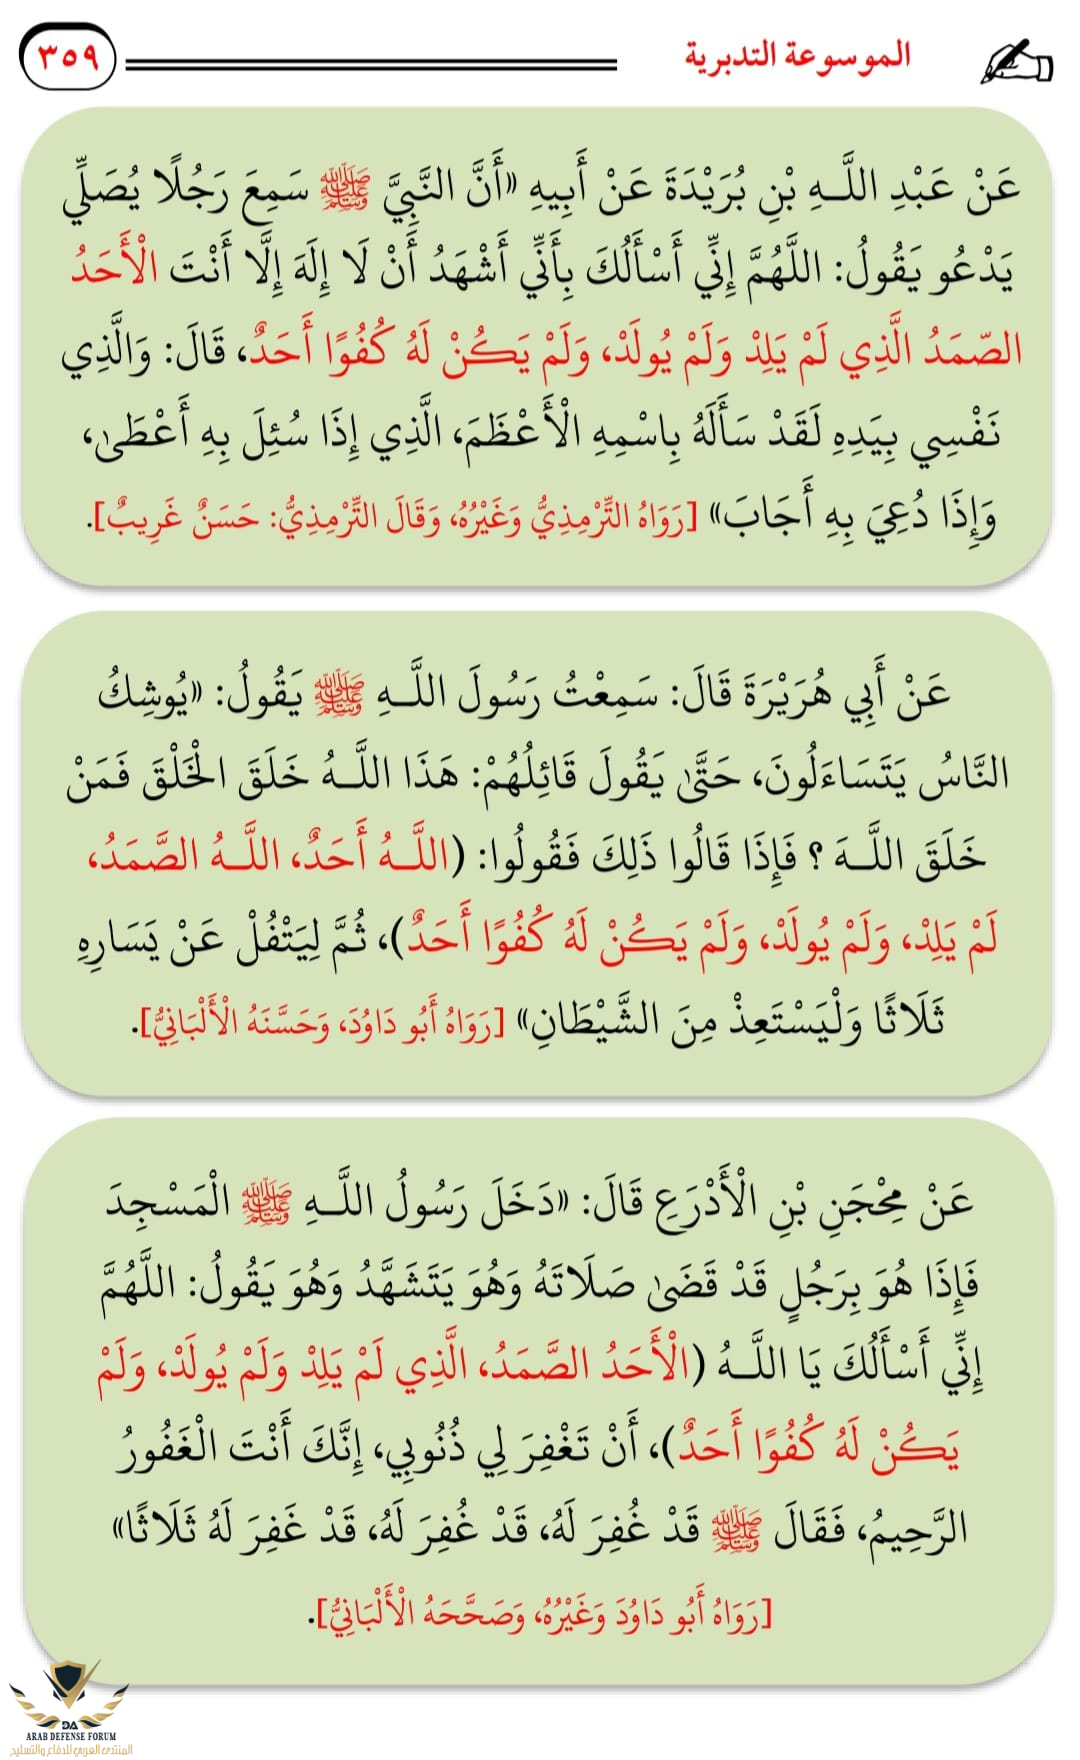 الموسوعة التدبرية
٣٥٩
عَنْ عَبْدِ اللَّـهِ بْنِ بُرَيْدَةَ عَنْ أَبِيهِ «أَنَّ النَّبِيَّ ﷺ سَمِعَ رَجُلًا يُصَلِّي
يَدْعُو يَقُولُ: اللَّهُمَّ إِنِّي أَسْأَلُكَ بِأَنِّي أَشْهَدُ أَنْ لَا إِلَهَ إِلَّا أَنْتَ الْأَحَدُ
الصّمَدُ الَّذِي لَمْ يَلِدْ وَلَمْ يُولَدْ، وَلَمْ يَكُنْ لَهُ كُفُوًا أَحَدٌ، قَالَ: وَالَّذِي
نَفْسِي بِيَدِهِ لَقَدْ سَأَلَهُ بِاسْمِهِ الْأَعْظَمَ، الَّذِي إِذَا سُئِلَ بِهِ أَعْطَىٰ،
وَإِذَا دُعِيَ بِهِ أَجَابَ» [رَوَاهُ التِّرْمِذِيُّ وَغَيْرُهُ، وَقَالَ التِّرْمِذِيُّ: حَسَنٌ غَرِيبٌ].
عَنْ أَبِي هُرَيْرَةَ قَالَ: سَمِعْتُ رَسُولَ اللَّـهِ ﷺ يَقُولُ: «يُوشِكُ
النَّاسُ يَتَسَاءَلُونَ، حَتَّىٰ يَقُولَ قَائِلُهُمْ: هَذَا اللَّـهُ خَلَقَ الْخَلْقَ فَمَنْ
خَلَقَ اللَّـهَ ؟ فَإِذَا قَالُوا ذَلِكَ فَقُولُوا: (اللَّـهُ أَحَدٌ، اللَّـهُ الصَّمَدُ،
لَمْ يَلِدْ، وَلَمْ يُولَدْ، وَلَمْ يَكُنْ لَهُ كُفُوًا أَحَدٌ)، ثُمَّ لِيَتْفُلْ عَنْ يَسَارِهِ
ثَلَاثًا وَلْيَسْتَعِذْ مِنَ الشَّيْطَانِ» [رَوَاهُ أَبُو دَاوُدَ، وَحَسَّنَهُ الْأَلْبَانِيُّ].
عَنْ مِحْجَنِ بْنِ الْأَدْرَعِ قَالَ: «دَخَلَ رَسُولُ اللَّـهِ ﷺ الْمَسْجِدَ
فَإِذَا هُوَ بِرَجُلٍ قَدْ قَضَىٰ صَلَاتَهُ وَهُوَ يَتَشَهَّدُ وَهُوَ يَقُولُ: اللَّهُمَّ
إِنِّي أَسْأَلُكَ يَا اللَّـهُ (الْأَحَدُ الصَّمَدُ، الَّذِي لَمْ يَلِدْ وَلَمْ يُولَدْ، وَلَمْ
يَكُنْ لَهُ كُفُوًا أَحَدٌ)، أَنْ تَغْفِرَ لِي ذُنُوبِي، إِنَّكَ أَنْتَ الْغَفُورُ
الرَّحِيمُ، فَقَالَ ﷺ قَدْ غُفِرَ لَهُ، قَدْ غُفِرَ لَهُ، قَدْ غَفِرَ لَهُ ثَلَاثًا»
[رَوَاهُ أَبُو دَاوُدَ وَغَيْرُهُ، وَصَحَّحَهُ الْأَلْبَانِيُّ].
DA
ARAB DEFENSE FORUM
المنتدى العربي للدفاع والتسليح